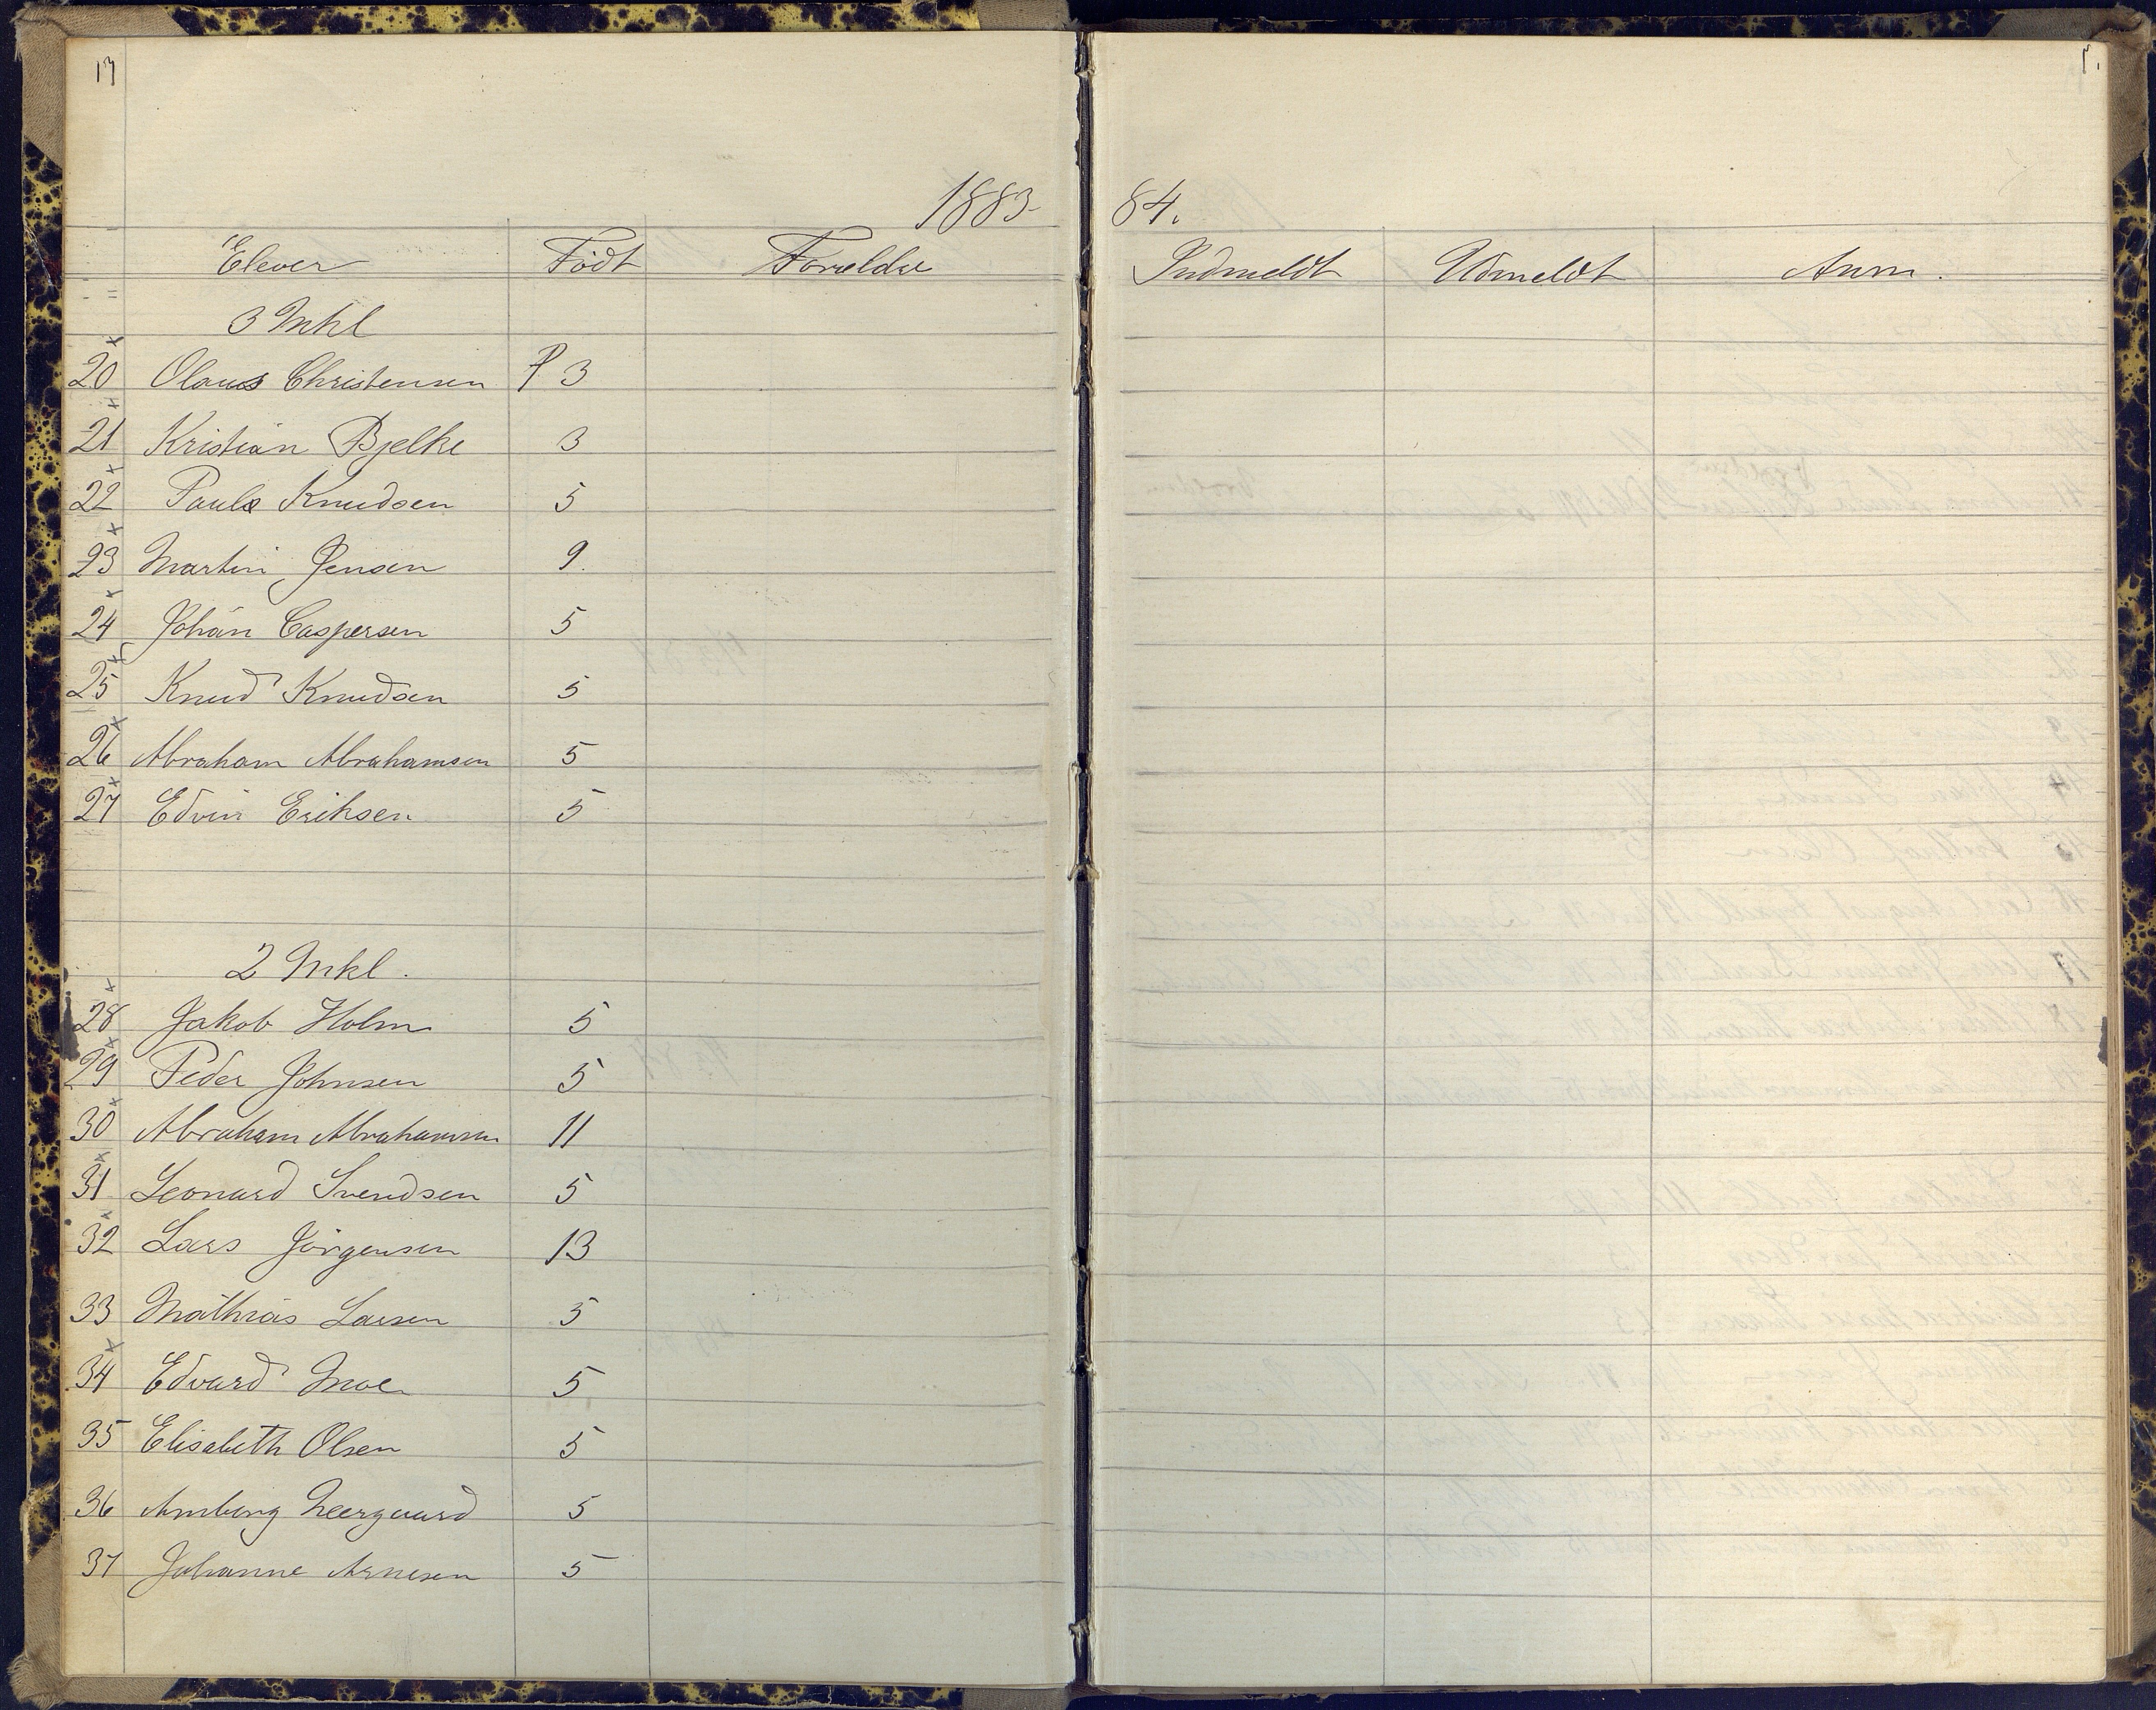 1883-84.
Elever Födt Forældre Indmeldt Udmeldt Anm.
3 Mkl
20 Olaus Christensen P 3
21 Kristian Bjelke 3
22 Paul Knudsen 5
23 Martin Jensen 9.
24 Johan Caspersen 5
25 Knud Knudsen 5
26 Abraham Abrahamsen 5
27 Edvin Eriksen 5
2 Mkl.
28 Jakob Holm 5
29 Peder Johnsen 5
30 Abraham Abrahamsen 11
31 Leonard Svendsen 5
32 Lars Jörgensen 13
33 Mathias Larsen 5
34 Edvard Moe 5
35 Elisabeth Olsen 5
36 Neergaard 5
37 Johanne Arnesen 5